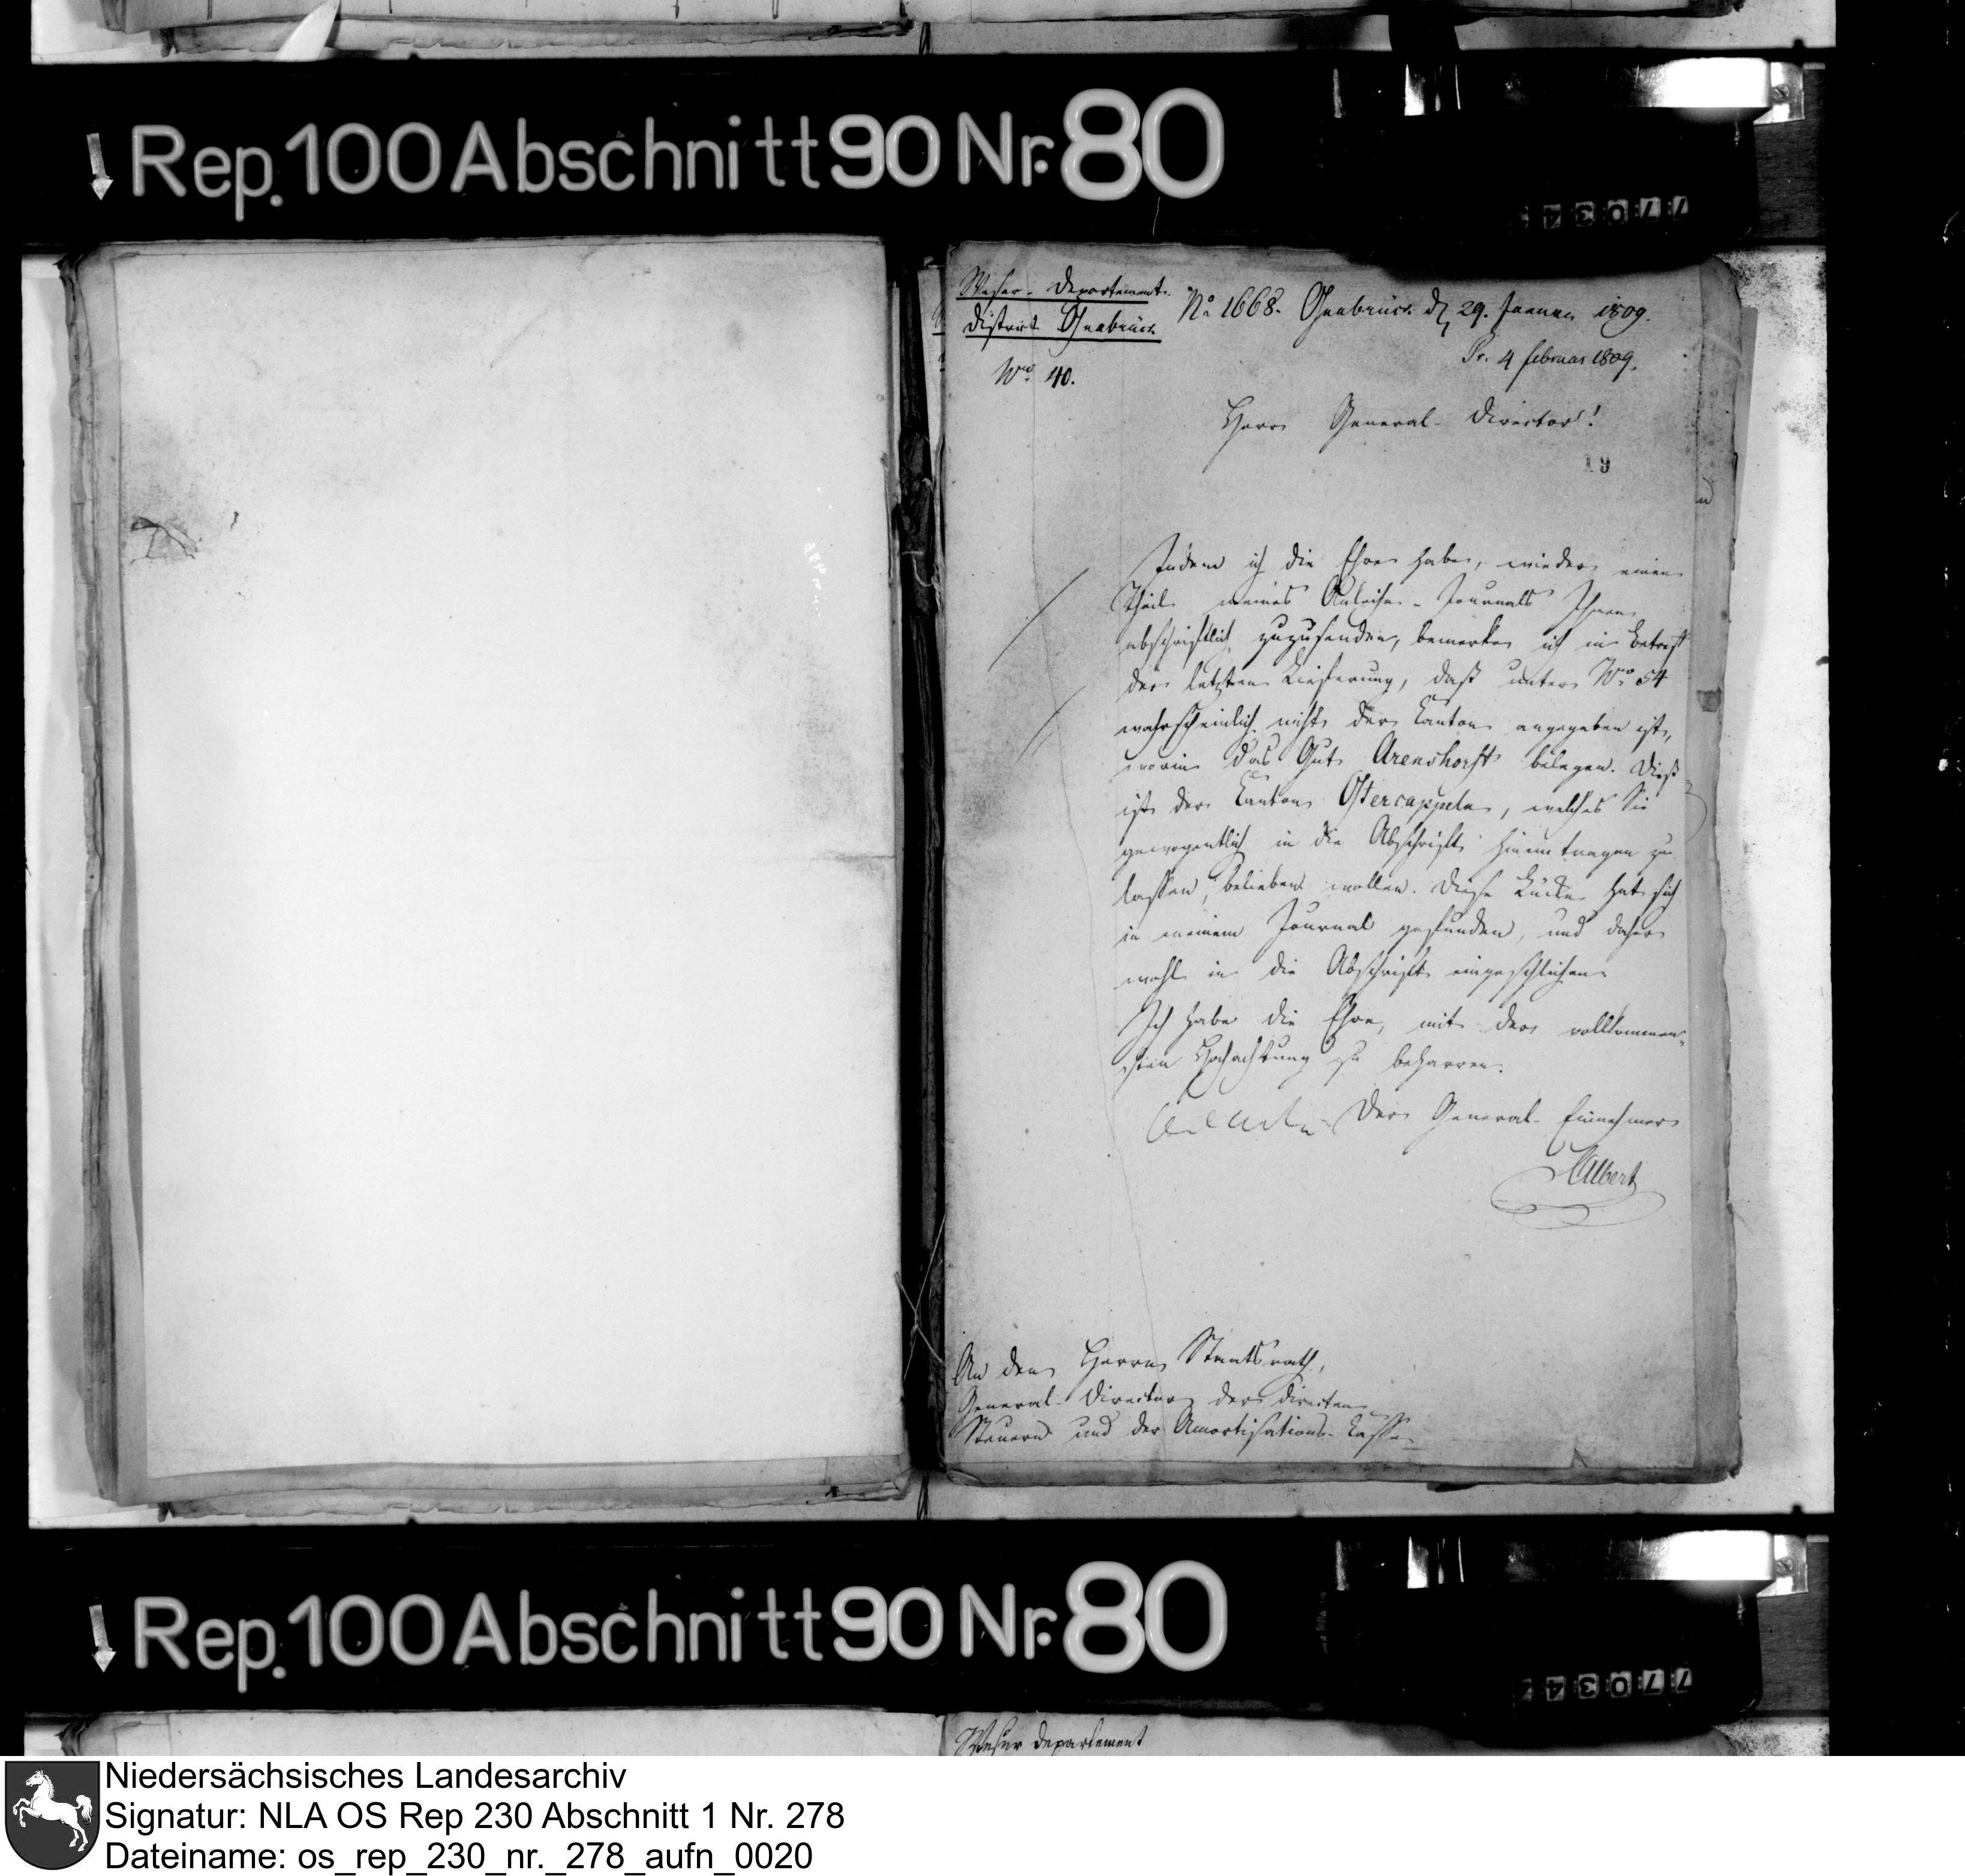 Rep. 100 Abschnitt 90 Nr. 80
77034
Weser-Departement.
District Osnabrück
Nro 40.
No 1668. Osnabrück d. 29. Januar 1809.
Pr. 4 februar 1809.
Herr General-Director!
19
Indem ich die Ehre habe, wieder einen
Theil meines Anleihe-Journals Ihnen
abschriftlich zuzusenden, bemerke ich in Betreff
der letzten Lieferung, daß unter Nro 54
wahrscheinlich nicht der Canton angegeben ist,
worin das Gut Arenshorst belegen. Dieß
ist der Canton Ostercappeln, welches Sie
gewogentlich in die Abschrift hineintragen zu
lassen, belieben wollen. Diese Lücke hat sich
in meinem Journal gefunden, und daher
wohl in die Abschrift eingeschlichen.
Ich habe die Ehre, mit der vollkommen-
sten Hochachtung zu beharren.
Der General-Einnehmer
Albert
An den Herrn Staatsrath,
General-Director der directen
Steuern und der Amortisations-Casse
Rep. 100 Abschnitt 90 Nr. 80
77034
Weser departement
Niedersächsisches Landesarchiv
Signatur: NLA OS Rep 230 Abschnitt 1 Nr. 278
Dateiname: os_rep_230_nr._278_aufn_0020